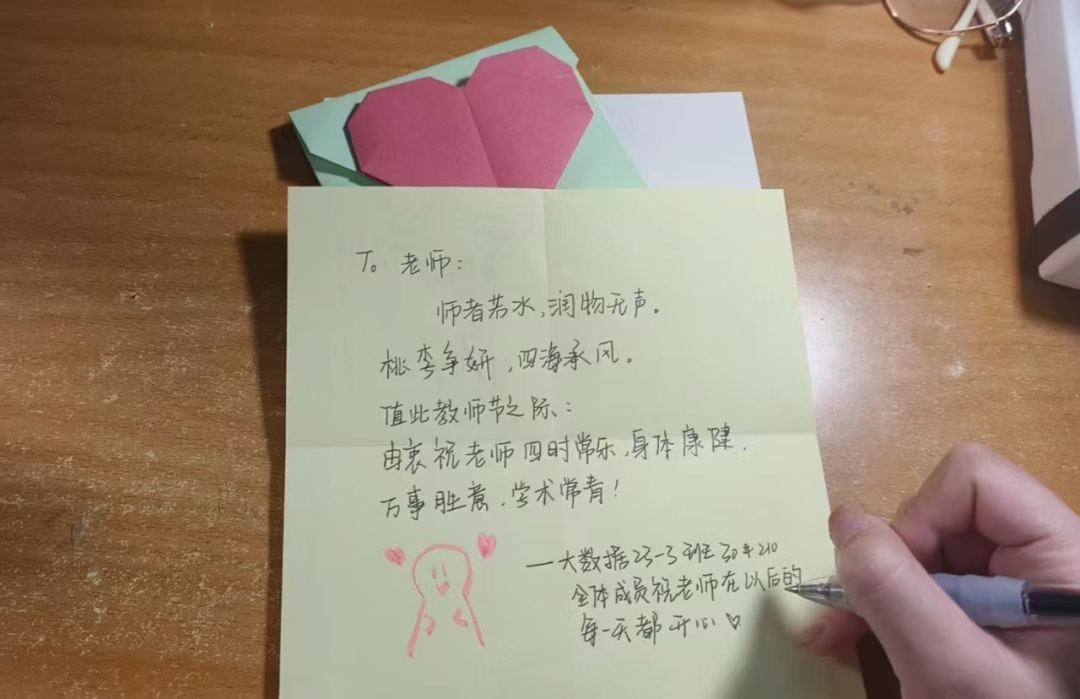 To 老师:
师者若水,润物无声。
桃李争妍,四海承风。
值此教师节之际:
由衷祝老师四时常乐,身体康健.
万事胜意.学术常青!
—大数据23-3班30#210
全体成员祝老师在以后的
每一天都开心♡